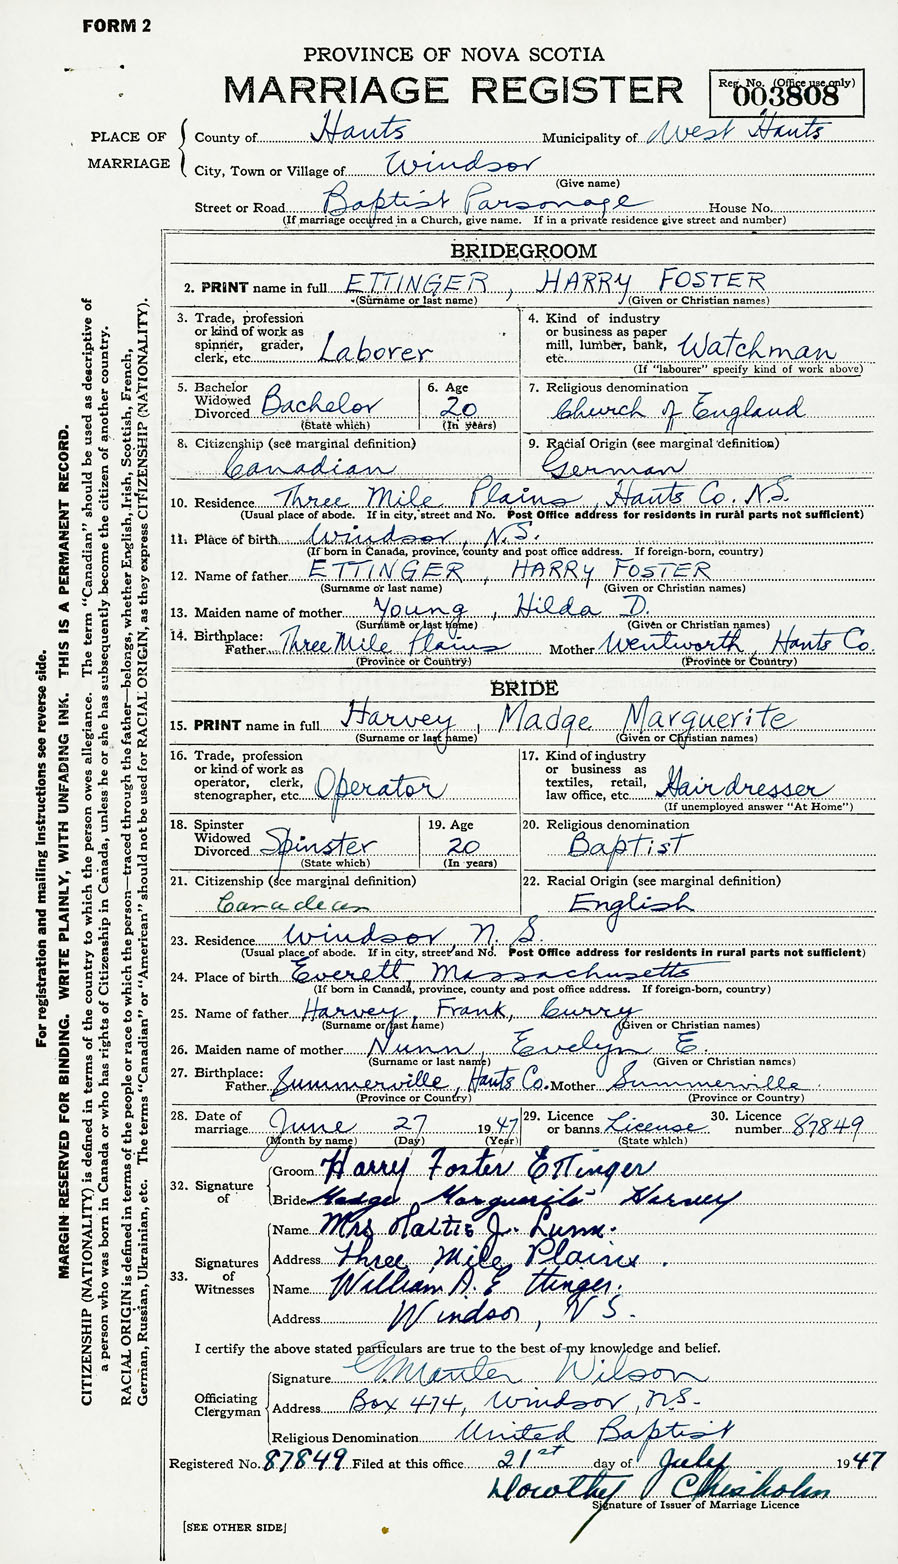 FORM 2
PROVINCE OF NOVA SCOTIA
MARRIAGE REGISTER
Reg. No. (Office use only)
003808
PLACE OF MARRIAGE
County of Hants Municipality of West Hants
City, Town or Village of Windsor
(Give name)
Street or Road Baptist Parsonage House No.
(If marriage occurred in a Church, give name. If in a private residence give street and number)
BRIDEGROOM
2. PRINT name in full ETTINGER, HARRY FOSTER
(Surname or last name) (Given or Christian names)
3. Trade, profession
or kind of work as
spinner, grader,
clerk, etc. Laborer
4. Kind of industry
or business as paper
mill, lumber, bank,
etc. Watchman
(If "labourer" specify kind of work above)
5. Bachelor
Widowed
Divorced Bachelor
(State which)
6. Age
20
(In years)
7. Religious denomination
Church of England
8. Citizenship (see marginal definition)
Canadian
9. Racial Origin (see marginal definition)
German
10. Residence Three Mile Plains, Hants Co. N.S.
(Usual place of abode. If in city, street and No. Post Office address for residents in rural parts not sufficient)
11. Place of birth Windsor, N.S.
(If born in Canada, province, county and post office address. If foreign-born, country)
12. Name of father ETTINGER, HARRY FOSTER
(Surname or last name) (Given or Christian names)
13. Maiden name of mother Young, Hilda D.
(Surname or last name) (Given or Christian names)
14. Birthplace:
Father Three Mile Plains Mother Wentworth, Hants Co.
(Province or Country) (Province or Country)
BRIDE
15. PRINT name in full Harvey, Madge Marguerite
(Surname or last name) (Given or Christian names)
16. Trade, profession
or kind of work as
operator, clerk,
stenographer, etc. Operator
17. Kind of industry
or business as
textiles, retail,
law office, etc. Hairdresser
(If unemployed answer "At Home")
18. Spinster
Widowed
Divorced Spinster
(State which)
19. Age
20
(In years)
20. Religious denomination
Baptist
21. Citizenship (see marginal definition)
Canadean
22. Racial Origin (see marginal definition)
English
23. Residence Windsor, N. S.
(Usual place of abode. If in city, street and No. Post Office address for residents in rural parts not sufficient)
24. Place of birth Everett, Massachusetts
(If born in Canada, province, county and post office address. If foreign-born, country)
25. Name of father Harvey, Frank, Curry
(Surname or last name) (Given or Christian names)
26. Maiden name of mother Nunn Evelyn E.
(Surname or last name) (Given or Christian names)
27. Birthplace:
Father Summerville, Hants Co. Mother Summerville
(Province or Country) (Province or Country)
28. Date of
marriage June 27 1947
(Month by name) (Day) (Year)
29. Licence
or banns License
(State which)
30. Licence
number 87849
32. Signature of
Groom Harry Foster Ettinger
Bride Madge Marguerite Harvey
33. Signatures of Witnesses
Name Mrs J. Lunn.
Address Three Mile Plains.
Name William A. Ettinger.
Address Windsor, N S.
I certify the above stated particulars are true to the best of my knowledge and belief.
Officiating Clergyman
Signature G. Manter Wilson
Address Box 474, Windsor, N.S.
Religious Denomination United Baptist
Registered No. 87849 Filed at this office 21st day of July 1947
Dorothy Chisholm
Signature of Issuer of Marriage Licence
[SEE OTHER SIDE]
For registration and mailing instructions see reverse side.
MARGIN RESERVED FOR BINDING. WRITE PLAINLY, WITH UNFADING INK. THIS IS A PERMANENT RECORD.
CITIZENSHIP (NATIONALITY) is defined in terms of the country to which the person owes allegiance. The term "Canadian" should be used as descriptive of
a person who was born in Canada or who has rights of Citizenship in Canada, unless he or she has subsequently become the citizen of another country.
RACIAL ORIGIN is defined in terms of the people or race to which the person—traced through the father—belongs, whether English, Irish, Scottish, French,
German, Russian, Ukrainian, etc. The terms "Canadian" or "American" should not be used for RACIAL ORIGIN, as they express CITIZENSHIP (NATIONALITY).